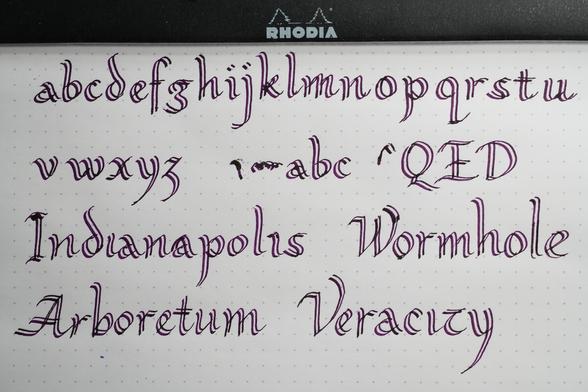 RHODIA
abcdefghijklmnopqrstu
vwxyz abc QED
Indianapolis Wormhole
Arboretum Veracity